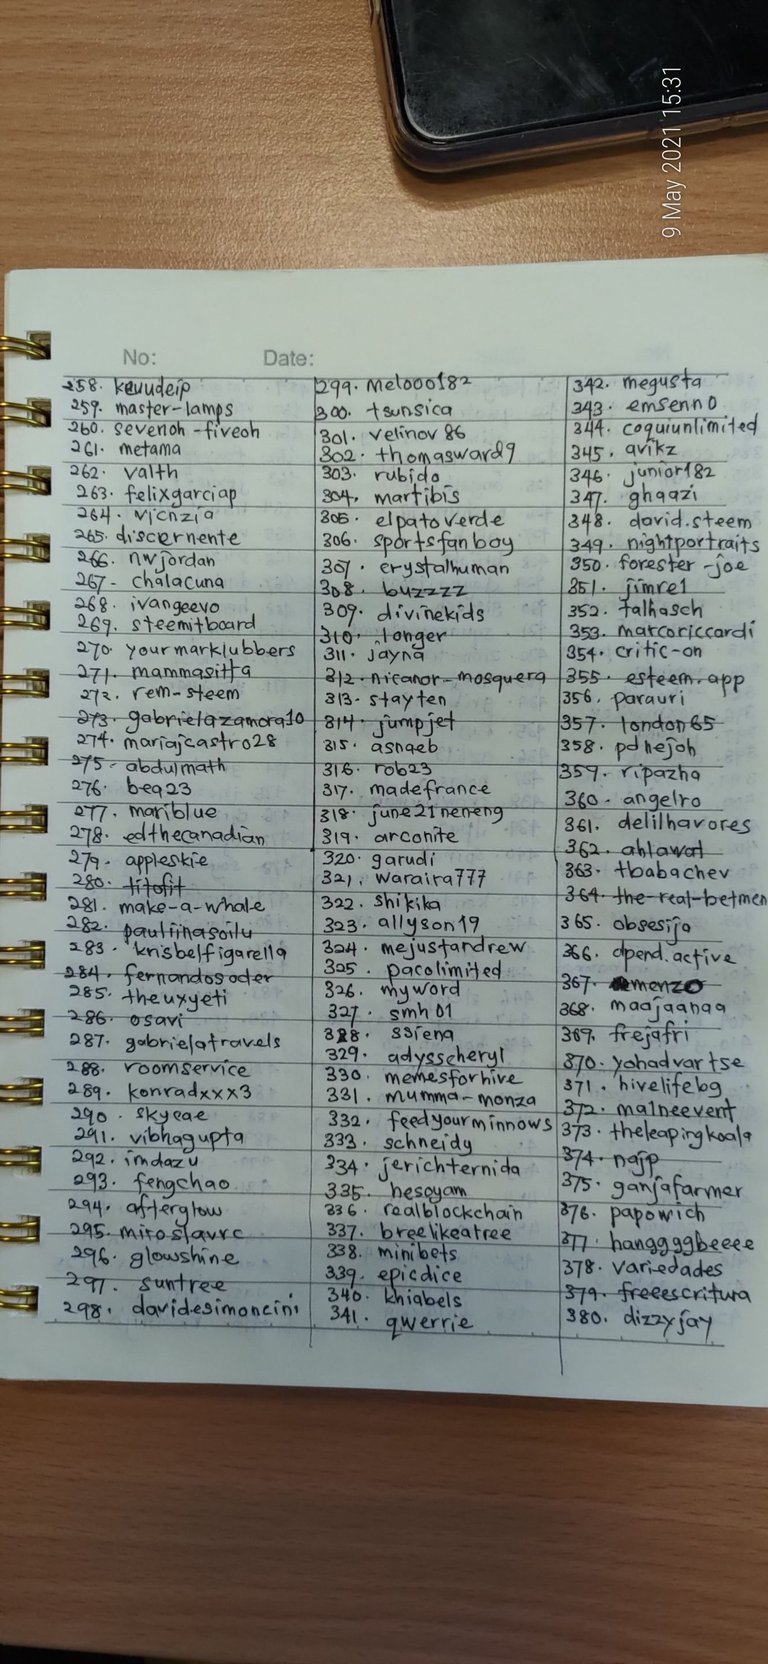 9 May 2021 15:31
No: Date:
258. kevudeip
259. master-lamps
260. sevenoh-fiveoh
261. metama
262. valth
263. felixgarciap
264. vicnzia
265. discernente
266. nwjordan
267- chalacuna
268. ivangeevo
269. steemitboard
270. yourmarklubbers
271. mammasitta
272. rem-steem
273. gabrielazamora10
274. mariajcastro28
275- abdulmath
276. beq23
277. mariblue
278. edthecanadian
279. appleskie
280. titofit
281. make-a-whale
282. pauliinasoilu
283. krisbelfigarella
284. fernandosoder
285. theuxyeti
286. osavi
287. gabrielatravels
288. roomservice
289. konradxxx3
290. skyeae
291. vibhagupta
292. imdazu
293. fengchao
294. afterglow
295. miroslavrc
296. glowshine
297. suntree
298. davidesimoncini
299. meloooo182
300. tsunsica
301. velinov86
302. thomasward9
303. rubido
304. martibis
305. elpatoverde
306. sportsfanboy
307. erystalhuman
308. buzzzz
309. divinekids
310. longer
311. jayna
312. nicanor-mosquera
313. stayten
314. jumpjet
315. asnaeb
316. rob23
317. madefrance
318. june21neneng
319. arconite
320. garudi
321. waraira777
322. shikika
323. allyson19
324. mejustandrew
325. pacolimited
326. myword
327. smh01
328. ssiena
329. adysscheryl
330. memesforhive
331. mumma-monza
332. feedyourminnows
333. schneidy
334. jerichternida
335. hesoyam
336. realblockchain
337. breelikeatree
338. minibets
339. epicdice
340. khiabels
341. qwerrie
342. megusta
343. emsenn0
344. coquiunlimited
345. avikz
346. junior182
347. ghaazi
348. david.steem
349. nightportraits
350. forester-joe
351. jimre1
352. talhasch
353. marcoriccardi
354. critic-on
355. esteem.app
356. parauri
357. london65
358. pdnejoh
359. ripazha
360. angelro
361. delilhavores
362. ahlawat
363. tbabachev
364. the-real-betmen
365. obsesija
366. dpend.active
367. menzo
368. maajaanaa
369. frejafri
370. yohadvartse
371. hivelifebg
372. ma1neevent
373. theleapingkoala
374. najp
375. ganjafarmer
376. papowich
377. hanggggbeeee
378. variedades
379. freeescritura
380. dizzyjay